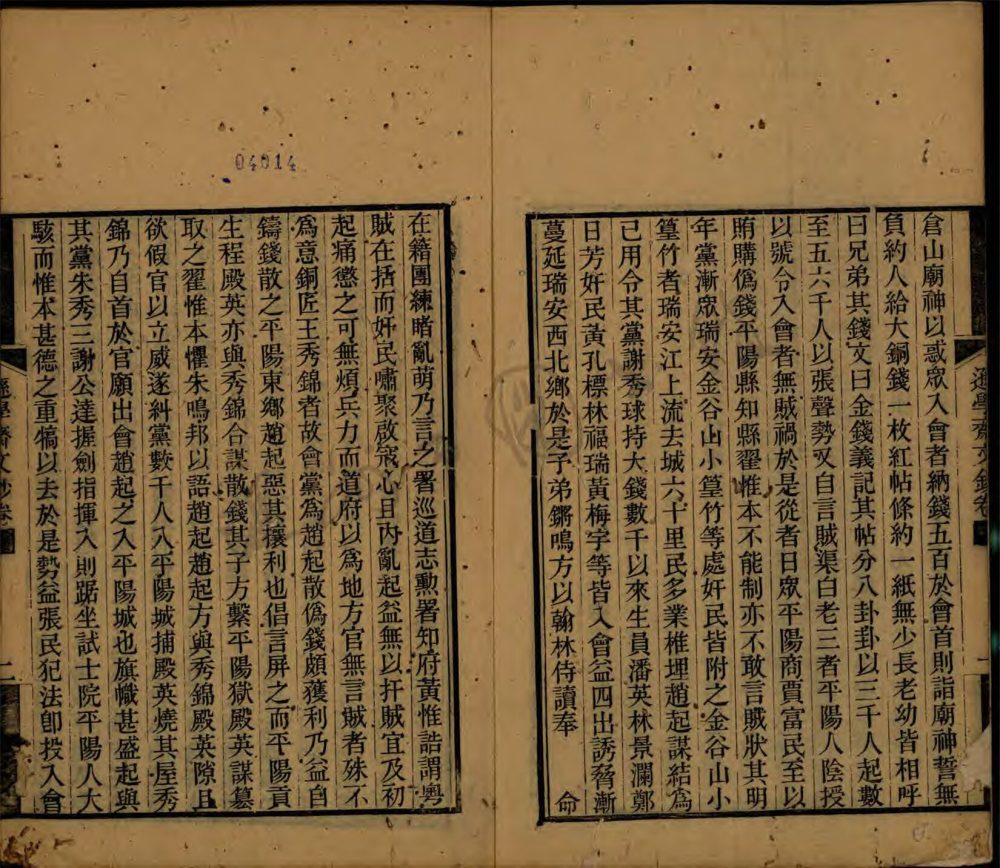 倉山廟神以惑眾入會者納錢五百於會首則詣廟神誓無
負約人給大銅錢一枚紅帖條約一紙無少長老幼皆相呼
曰兄弟其錢文曰金錢義記其帖分八卦卦以三千人起數
至五六千人以張聲勢又自言賊渠白老三者平陽人陰授
以號令入會者無賊禍於是從者日眾平陽商賈富民至以
賄購僞錢平陽縣知縣翟惟本不能制亦不敢言賊狀其明
年黨漸眾瑞安金谷山小篁竹等處奸民皆附之金谷山小
篁竹者瑞安江上流去城六十里民多業椎埋趙起謀結爲
己用令其黨謝秀球持大錢數千以來生員潘英林景瀾鄭
日芳奸民黃孔標林福瑞黃梅宇等皆入會益四出誘脅漸
蔓延瑞安西北鄉於是子弟鏘鳴方以翰林侍讀奉 命
遜學齋文鈔卷
在籍團練睹亂萌乃言之署巡道志勳署知府黃惟誥謂粵
賊在括而奸民嘯聚啟寇心且內亂起益無以扞賊宜及初
起痛懲之可無煩兵力而道府以爲地方官無言賊者殊不
爲意銅匠王秀錦者故會黨爲趙起散僞錢頗獲利乃益自
鑄錢散之平陽東鄉趙起惡其攘利也倡言屏之而平陽貢
生程殿英亦與秀錦合謀散錢其子方繫平陽獄殿英謀篡
取之翟惟本懼朱鳴邦以語趙起趙起方與秀錦殿英隙且
欲假官以立威遂糾黨數千人入平陽城捕殿英燒其屋秀
錦乃自首於官願出會趙起之入平陽城也旗幟甚盛起與
其黨朱秀三謝公達握劍指揮入則踞坐試士院平陽人大
駭而惟本甚德之重犒以去於是勢益張民犯法卽投入會
遜學齋文鈔卷
二
04014